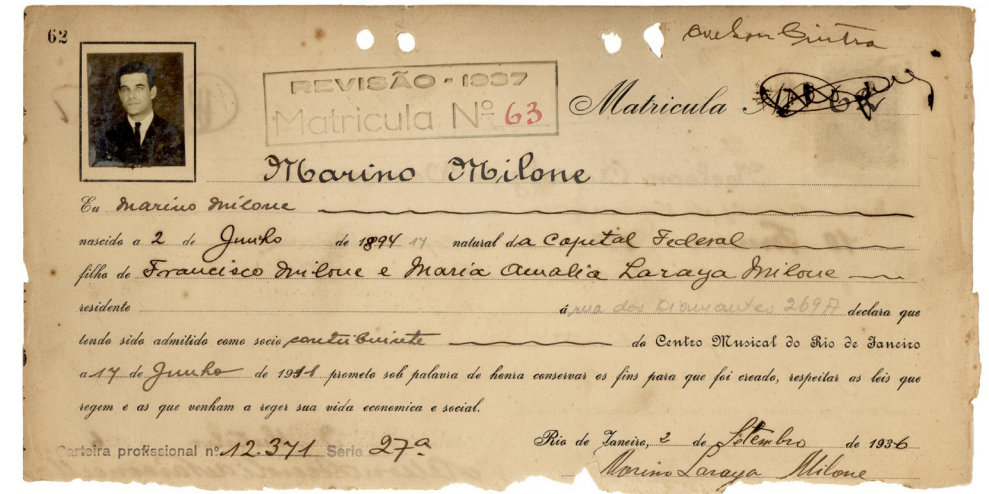 62
REVISÃO - 1937
Matricula Nº 63
Matricula
Marino Milone
Eu Marino Milone
nascido a 2 de Junho de 1894 17 natural da Capital Federal
filho de Francisco Milone e Maria Amalia Laraya Milone
residente á rua dos Diamantes 269A declara que
tendo sido admitido como socio contribuinte do Centro Musical do Rio de Janeiro
a 17 de Junho de 1918 prometo sob palavra de honra conservar os fins para que foi creado, respeitar as leis que
regem e as que venham a reger sua vida economica e social.
Carteira profissional nº 12.371 Série 27ª
Rio de Janeiro, 2 de Setembro de 1936
Marino Laraya Milone